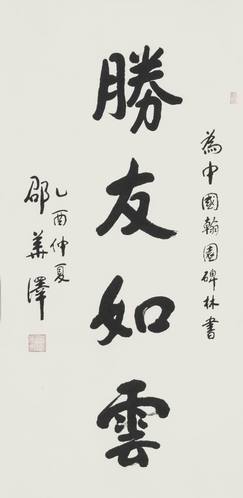 為中國翰園碑林書
勝友如雲
乙酉仲夏
邵華澤